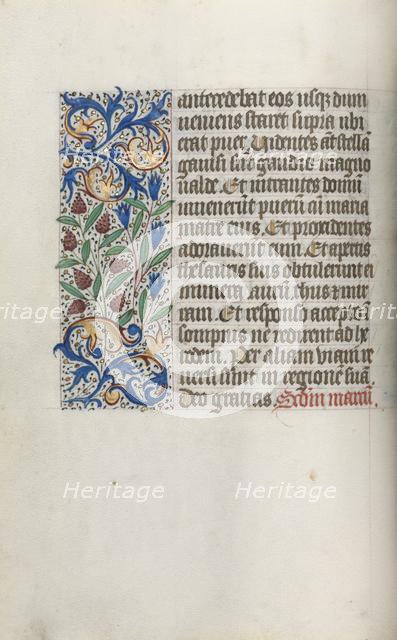 antecedebat eos usq̄ dum
ueniens staret supra ubi
erat puer. Uidentes aūt stellā
gauisi sūt gaudio magno
ualde. Et intrantes domū
inuenerūt puerū cū maria
matre eius. Et procidentes
adorauerūt eum. Et apertis
thesauris suis obtulerunt ei
munera, aurū, thus & mir
ram. Et responso accepto in
sompnis ne redirent ad he
rodem. Per aliam viam re
uersi sunt in regionē suā.
Deo gratias. Sc̄dm marcū.
Heritage
Heritage
Heritage
Heritage
Heritage
Heritage